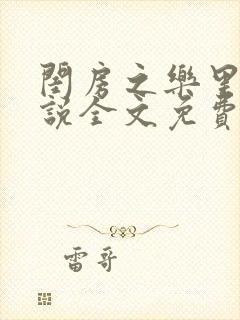 閨房之樂里
說全文免費
雷哥